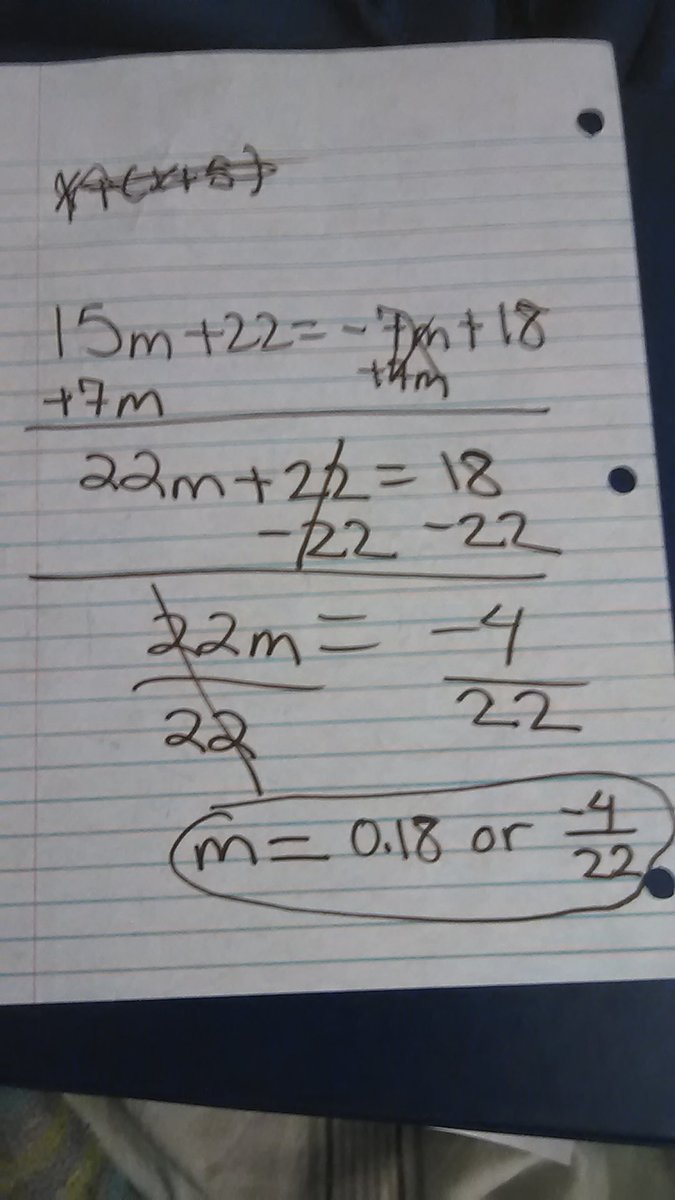 15m +22 = -7m + 18
+7m +7m
22m + 22 = 18
-22 -22
22m = -4
22 22
m = 0.18 or -4
22